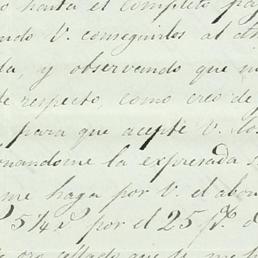 hasta el completo pa
ndo V. conseguirlos al d
da, y observando que m
te respecto, como creo de j
para que acepte V. los
onandome la expresada s
me haga por V. el abon
P 5¼ por el 25 p% d